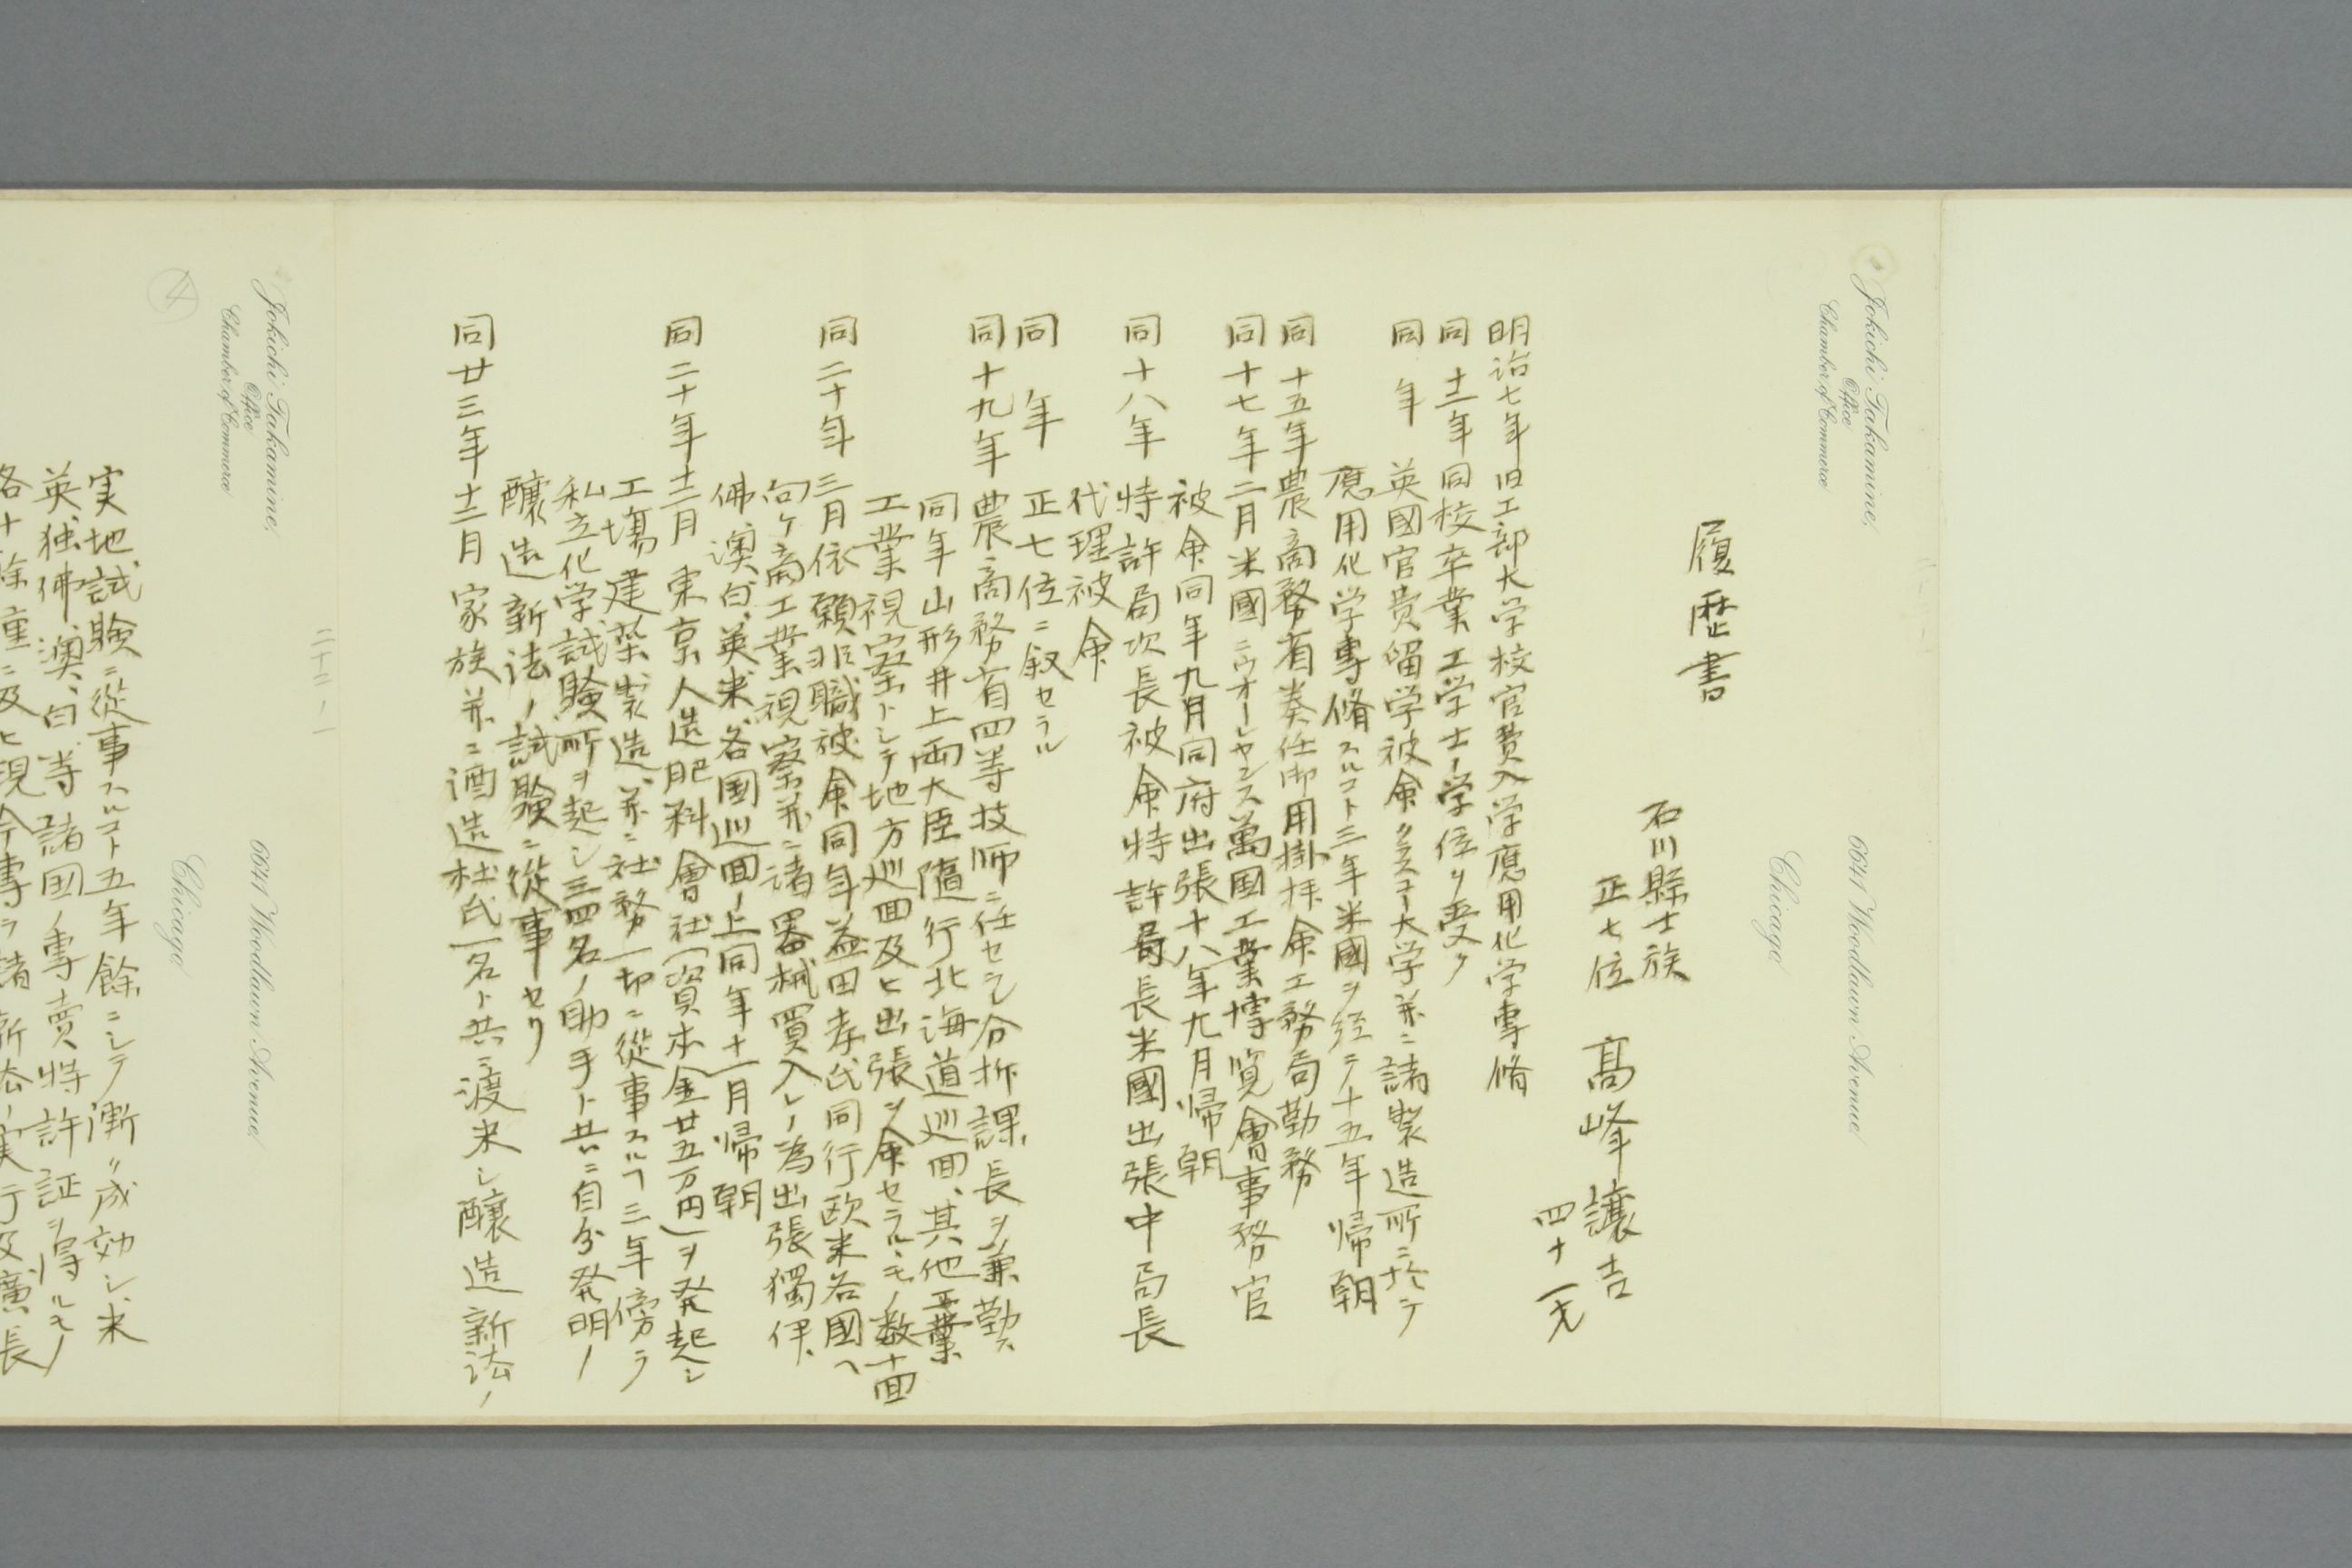 Jokichi Takamine,
Office
Chamber of Commerce
6641 Woodlawn Avenue
Chicago
履歴書
石川縣士族
正七位 髙峰譲吉
四十一才
明治七年旧工部大学校官費入学應用化学専脩
同十二年同校卒業工学士ノ学位ヲ受ク
同年 英國官費留学被命グラスコー大学并ニ諸製造所ニ於テ
應用化学専脩スルコト三年米國ヲ経テ十五年帰朝
同十五年農商務省奏任御用掛拝命工務局勤務
同十七年二月米國ニウオーレヤンス萬国工業博覧會事務官
被命同年九月同府出張十八年九月帰朝
同十八年 特許局次長被命特許局長米國出張中局長
代理被命
同年 正七位ニ叙セラル
同十九年農商務省四等技師ニ任セラレ分析課長ヲ兼勤ス
同年山形井上両大臣隨行北海道巡回、其他工業
工業視察トシテ地方巡回及ヒ出張ヲ命セラルヽモノ数十回
同二十年三月依願非職被命同年益田孝氏同行欧米各國ヘ
向ケ商工業視察并ニ諸器械買入レノ為出張獨、伊、
佛、澳、白、英、米、各国巡回ノ上同年十一月帰朝
同二十年十二月東京人造肥料會社(資本金廿五万円)ヲ発起シ
工場建築製造、并ニ社務一切ニ從事スルヿ三年傍ラ
私立化学試驗所ヲ起シ三四名ノ助手ト共ニ自分発明ノ
釀造新法ノ試驗ニ從事セリ
同廿三年十二月家族并ニ酒造杜氏一名ト共ニ渡米シ釀造新法ノ
二十二ノ一
Jokichi Takamine,
Office
Chamber of Commerce
6641 Woodlawn Avenue
Chicago
実地試驗ニ從事スルコト五年餘ニシテ漸ク成効シ、米
英、独、佛、澳、白、等諸国ノ専賣特許証ヲ得ルモノ
各十餘種ニ及ヒ現今専ラ諸新法ノ実行及廣長